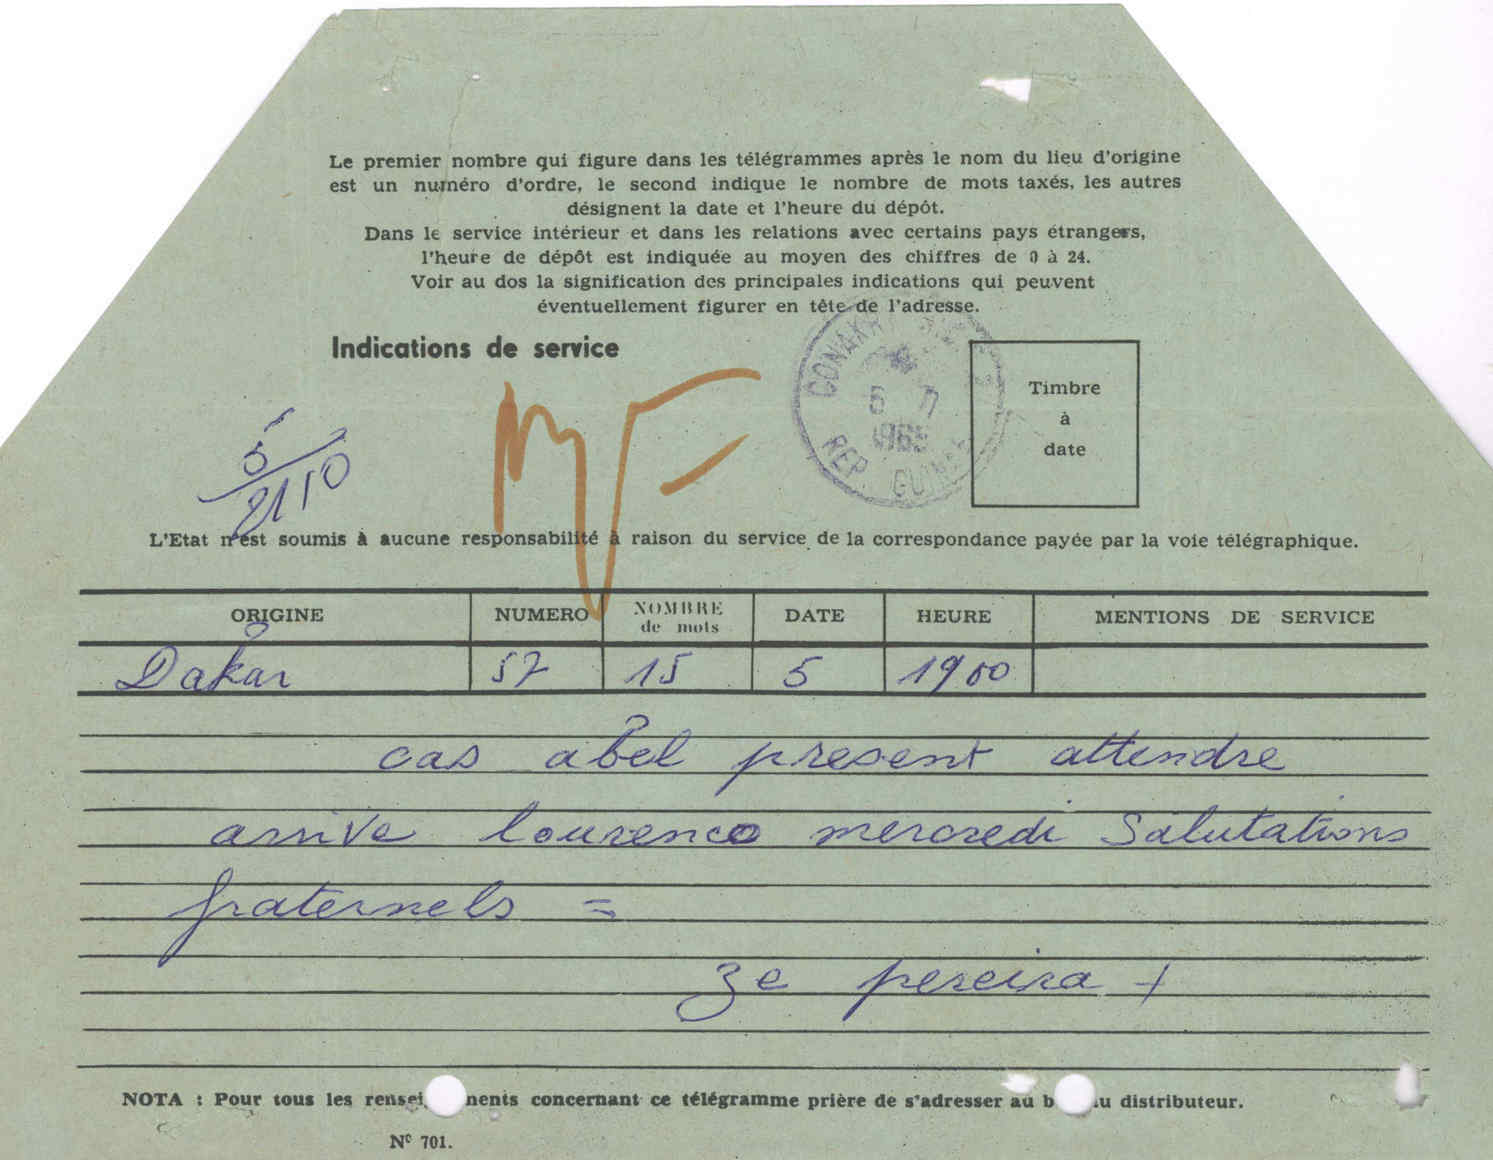 Le premier nombre qui figure dans les télégrammes après le nom du lieu d'origine
est un numéro d'ordre, le second indique le nombre de mots taxés, les autres
désignent la date et l'heure du dépôt.
Dans le service intérieur et dans les relations avec certains pays étrangers,
l'heure de dépôt est indiquée au moyen des chiffres de 0 à 24.
Voir au dos la signification des principales indications qui peuvent
éventuellement figurer en tête de l'adresse.
Indications de service
CONAKRY
5 7
1965
REP. GUINEE
Timbre
à
date
5
2110
L'Etat n'est soumis à aucune responsabilité à raison du service de la correspondance payée par la voie télégraphique.
ORIGINE NUMERO NOMBRE de mots DATE HEURE MENTIONS DE SERVICE
Dakar 57 15 5 1900
cas abel present attendre
arrive lourenco mercredi Salutations
fraternels =
ze pereira +
NOTA : Pour tous les rensei nements concernant ce télégramme prière de s'adresser au b u distributeur.
Nº 701.